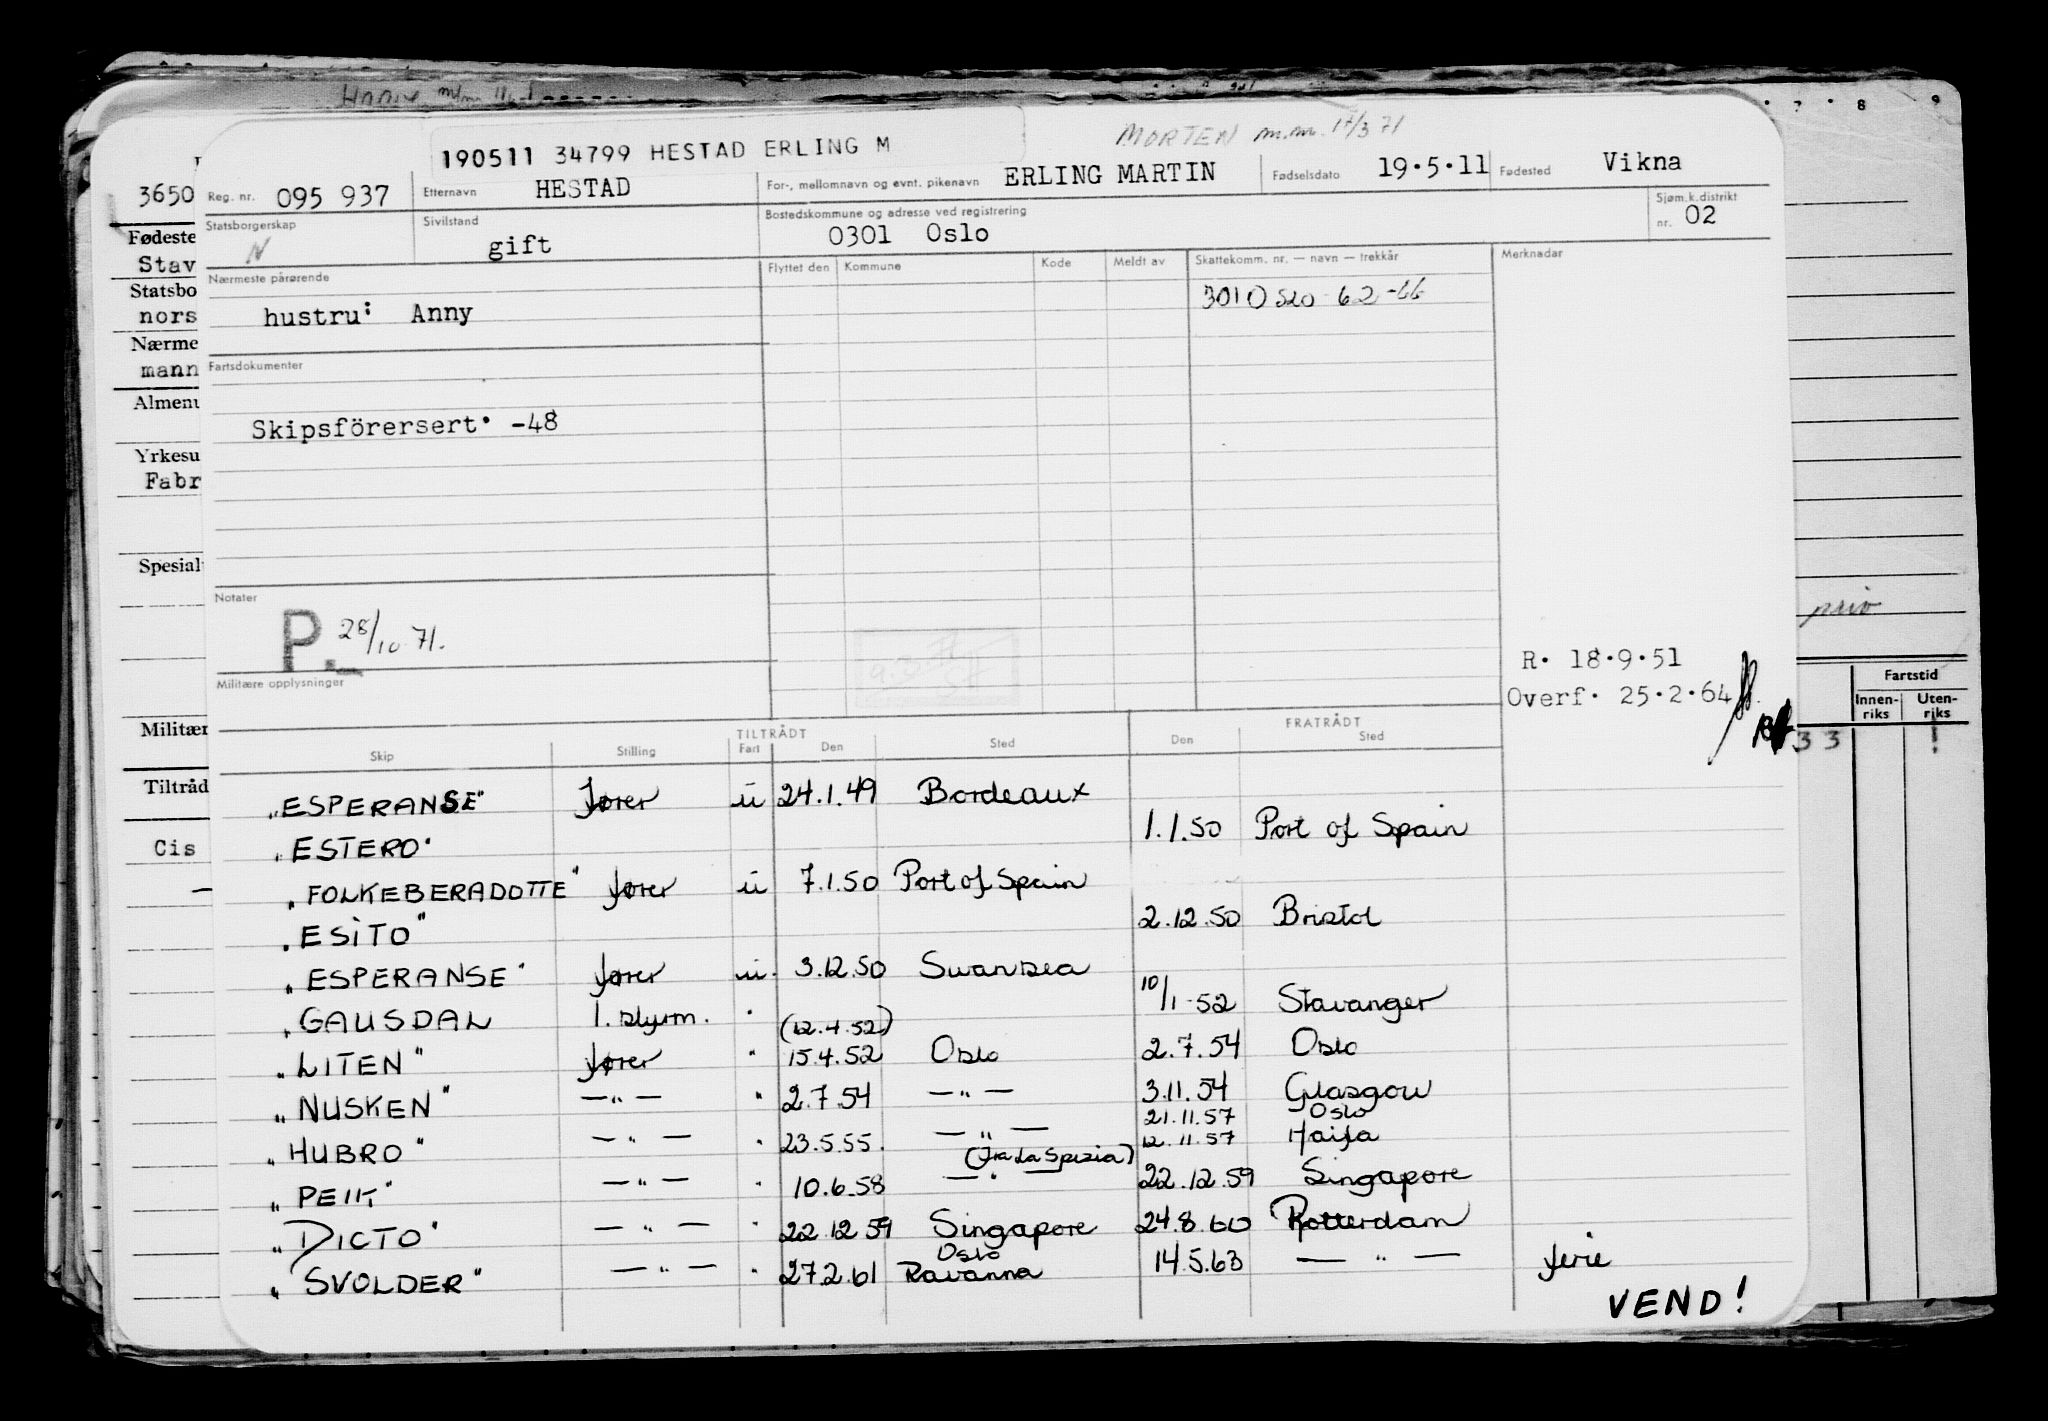 MORTEN m.m. 17/3 71
190511 34799 HESTAD ERLING M
Reg. nr. 095 937 Etternavn HESTAD For-, mellomnavn og evnt. pikenavn ERLING MARTIN Fødselsdato 19.5.11 Fødested Vikna
Statsborgerskap N Sivilstand gift Bostedskommune og adresse ved registrering 0301 Oslo Sjøm.k.distrikt nr. 02
Nærmeste pårørende Flyttet den Kommune Kode Meldt av Skattekomm. nr. — navn — trekkår Merknadar
hustru: Anny 301 Oslo 62-66
Fartsdokumenter
Skipsförersert. -48
Notater
P. 28/10 71.
R. 18.9.51
Militære opplysninger Overf. 25.2.64
TILTRÅDT FRATRÅDT
Skip Stilling Fart Den Sted Den Sted
„ESPERANSE" fører u 24.1.49 Bordeaux
„ESTERO" 1.1.50 Port of Spain
„FOLKEBERADOTTE" fører u 7.1.50 Port of Spain
„ESITO" 2.12.50 Bristol
„ESPERANSE" fører u. 3.12.50 Swansea
„GAUSDAL 1. styrm. " (12.4.52) 10/1-52 Stavanger
„LITEN" fører " 15.4.52 Oslo 2.7.54 Oslo
„NUSKEN" —"— " 2.7.54 —"— 3.11.54 Glasgow
21.11.57 Oslo
„HUBRO" —"— " 23.5.55. —"— 12.11.57 Haifa
(fra La Spezia)
„PEIK" —"— " 10.6.58 —"— 22.12.59 Singapore
„DICTO" —"— " 22.12.59 Singapore 24.8.60 Rotterdam
Oslo
„SVOLDER" —"— " 27.2.61 Ravanna 14.5.63 —"— ferie
VEND!
3650
Fødeste
Stav
Statsbo
nors
Nærme
mann
Almenu
Yrkesu
Fabr
Spesial
Militær
Tiltråd
Cis
7 8 9
priv
Fartstid
Innen-riks Uten-riks
33